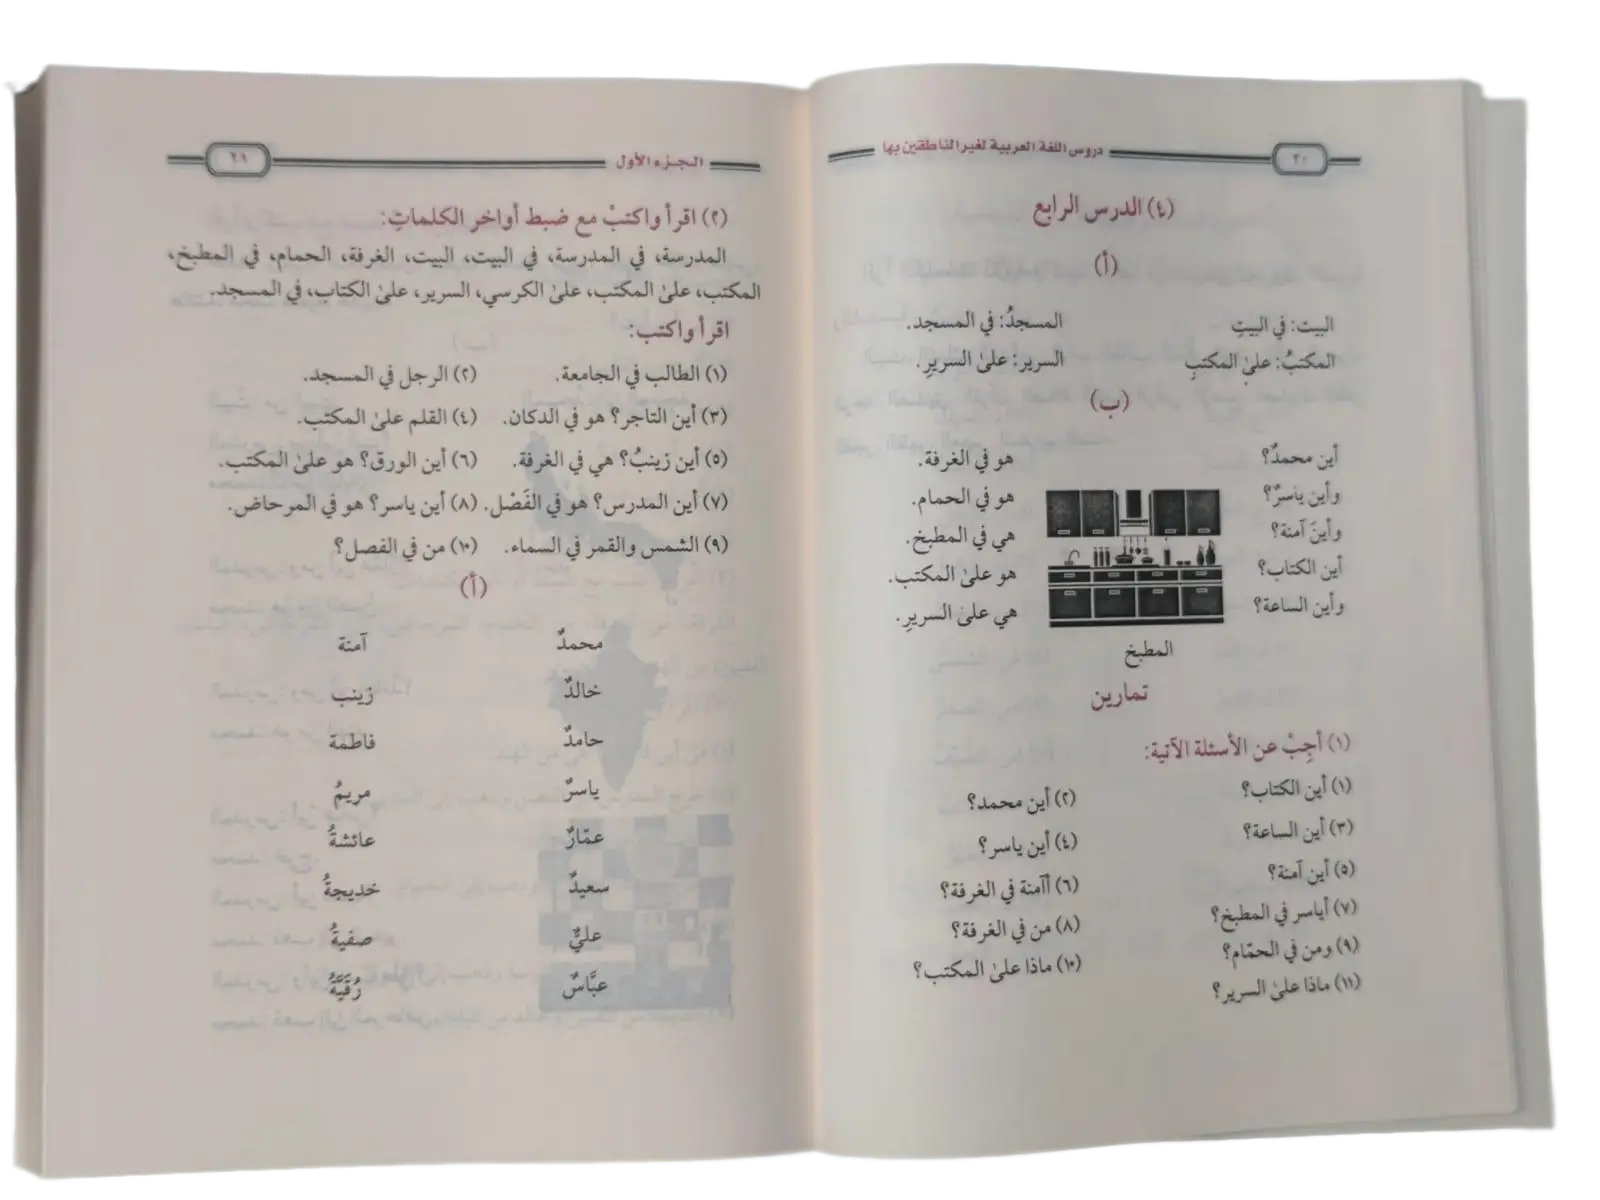 دروس اللغة العربية لغير الناطقين بها ٢٠
(٤) الدرس الرابع
(أ)
البيت: في البيتِ المسجدُ: في المسجد.
المكتبُ: علىٰ المكتبِ السرير: علىٰ السريرِ.
(ب)
أين محمدٌ؟ هو في الغرفة.
وأين ياسرٌ؟ هو في الحمام.
وأينَ آمنة؟ هي في المطبخ.
أين الكتاب؟ هو علىٰ المكتب.
وأين الساعة؟ هي علىٰ السريرِ.
المطبخ
تمارين
(١) أجِبْ عن الأسئلة الآتية:
(١) أين الكتاب؟ (٢) أين محمد؟
(٣) أين الساعة؟ (٤) أين ياسر؟
(٥) أين آمنة؟ (٦) أآمنة في الغرفة؟
(٧) أياسر في المطبخ؟ (٨) من في الغرفة؟
(٩) ومن في الحمّام؟ (١٠) ماذا علىٰ المكتب؟
(١١) ماذا علىٰ السرير؟
الجزء الأول ٢١
(٢) اقرأ واكتبْ مع ضبط أواخر الكلماتِ:
المدرسة، في المدرسة، في البيت، البيت، الغرفة، الحمام، في المطبخ،
المكتب، علىٰ المكتب، علىٰ الكرسي، السرير، علىٰ الكتاب، في المسجد.
اقرأ واكتب:
(١) الطالب في الجامعة. (٢) الرجل في المسجد.
(٣) أين التاجر؟ هو في الدكان. (٤) القلم علىٰ المكتب.
(٥) أين زينبُ؟ هي في الغرفة. (٦) أين الورق؟ هو علىٰ المكتب.
(٧) أين المدرس؟ هو في الفَصْل. (٨) أين ياسر؟ هو في المرحاض.
(٩) الشمس والقمر في السماء. (١٠) من في الفصل؟
(أ)
محمدٌ آمنة
خالدٌ زينب
حامدٌ فاطمة
ياسرٌ مريمُ
عمّارٌ عائشةُ
سعيدٌ خديجةُ
عليٌّ صفيةُ
عبَّاسٌ رُقَيَّةُ